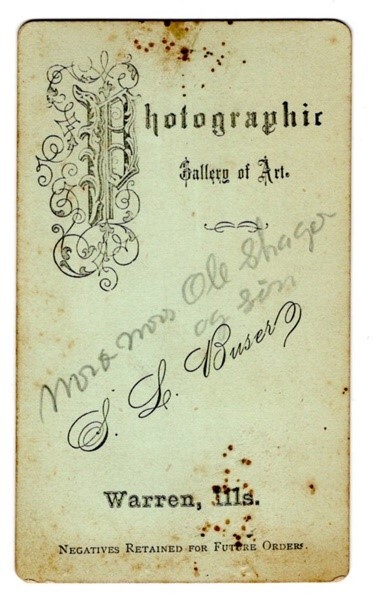 Photographic
Gallery of Art.
Mora Ole
og sön
S. L. Buser
Warren, Ills.
NEGATIVES RETAINED FOR FUTURE ORDERS.